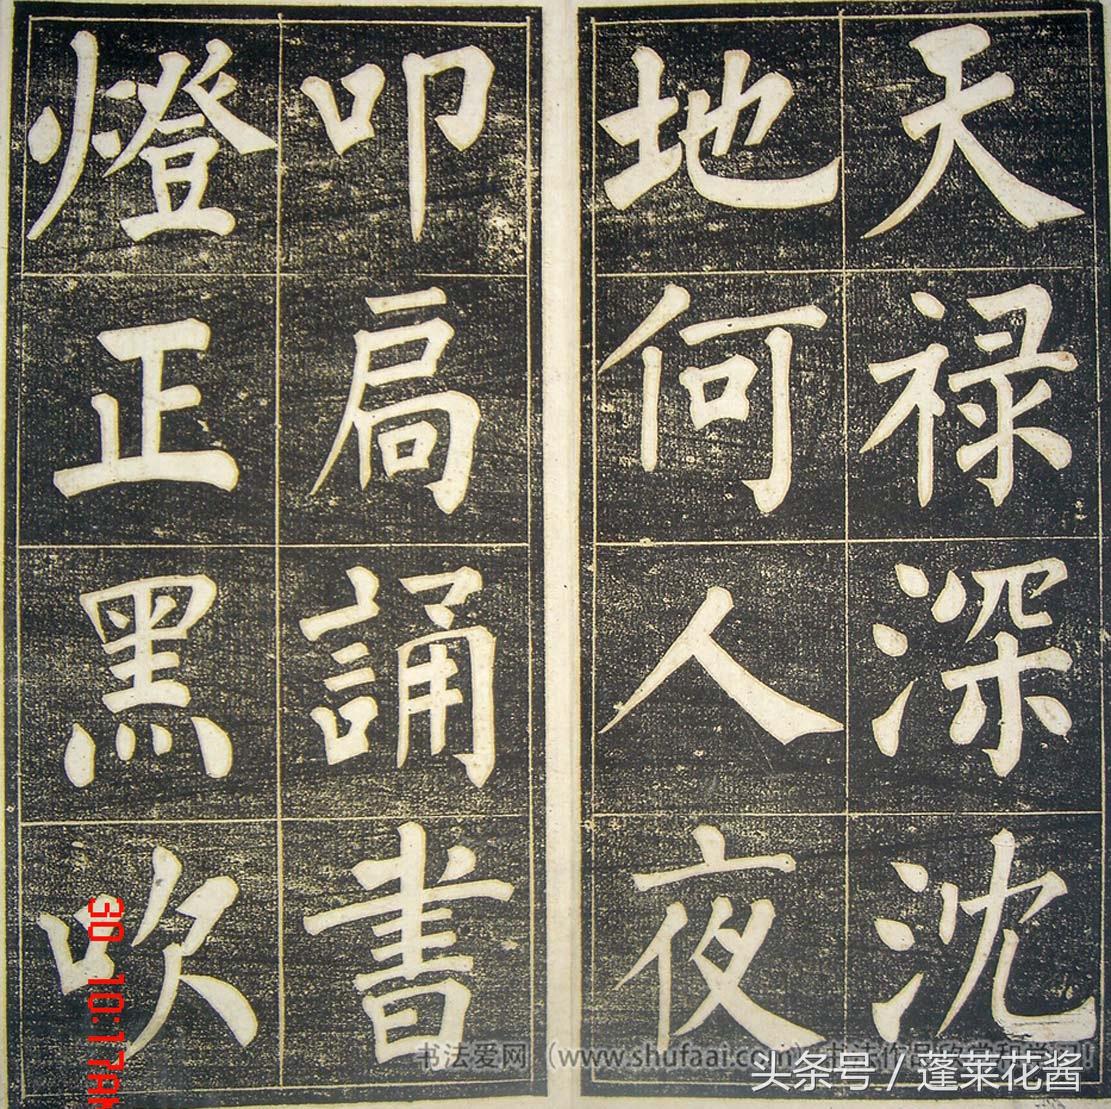 天禄深沈
地何人夜
叩扃誦書
燈正黑吹
30 10:17AM
书法爱网（www.shufaai.com）书法作品欣赏和学习!
头条号 / 蓬莱花酱